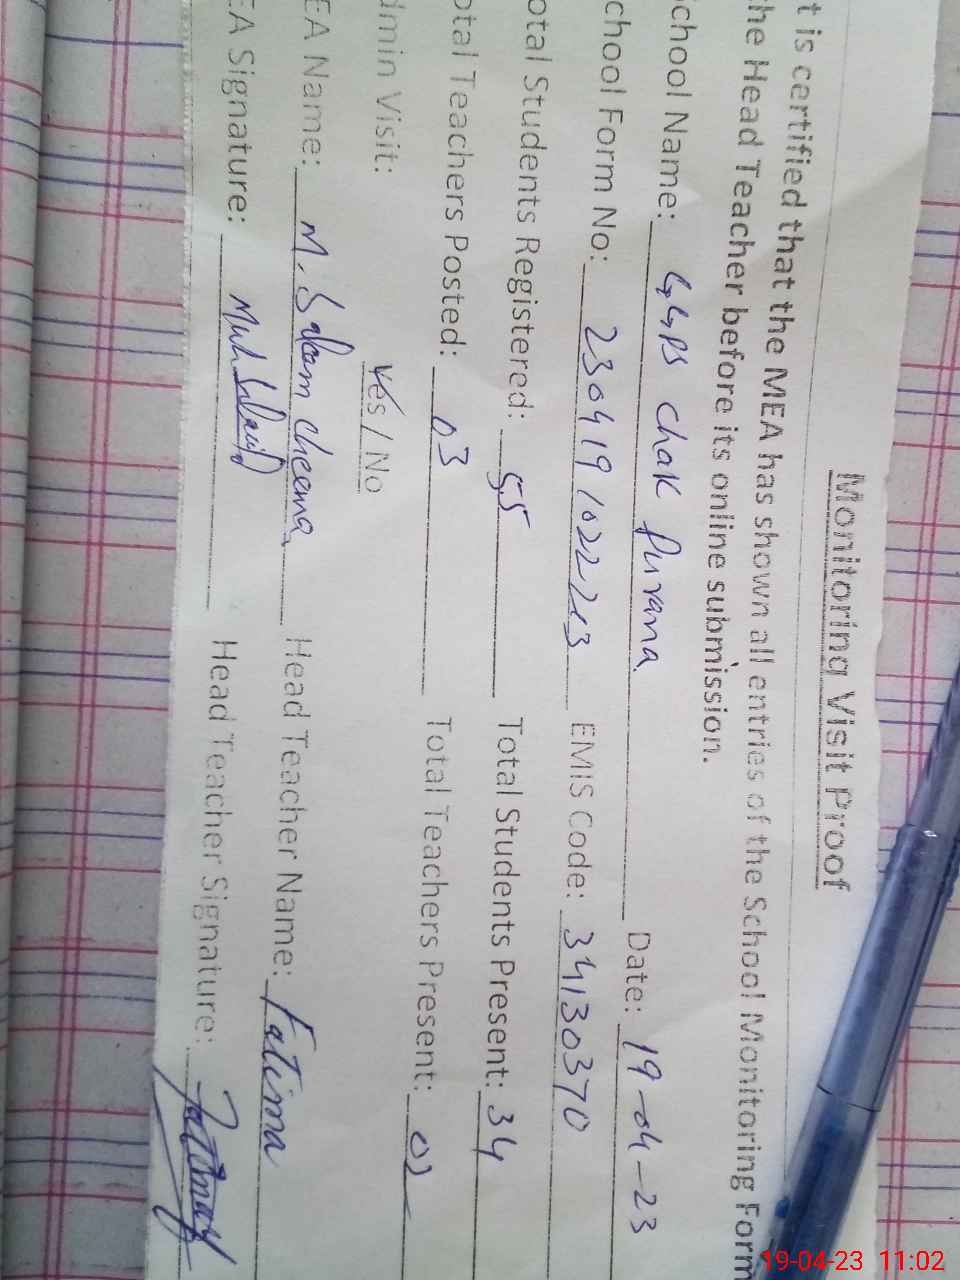 Monitoring Visit Proof
t is certified that the MEA has shown all entries of the School Monitoring Form
he Head Teacher before its online submission.
chool Name: GGPS Chak Purana Date: 19-04-23
chool Form No: 230419102223 EMIS Code: 34130370
otal Students Registered: 55 Total Students Present: 34
otal Teachers Posted: 03 Total Teachers Present:
dmin Visit: Yes / No
EA Name: M. Saleem Cheema Head Teacher Name: Fatima
EA Signature: Head Teacher Signature:
19-04-23 11:02